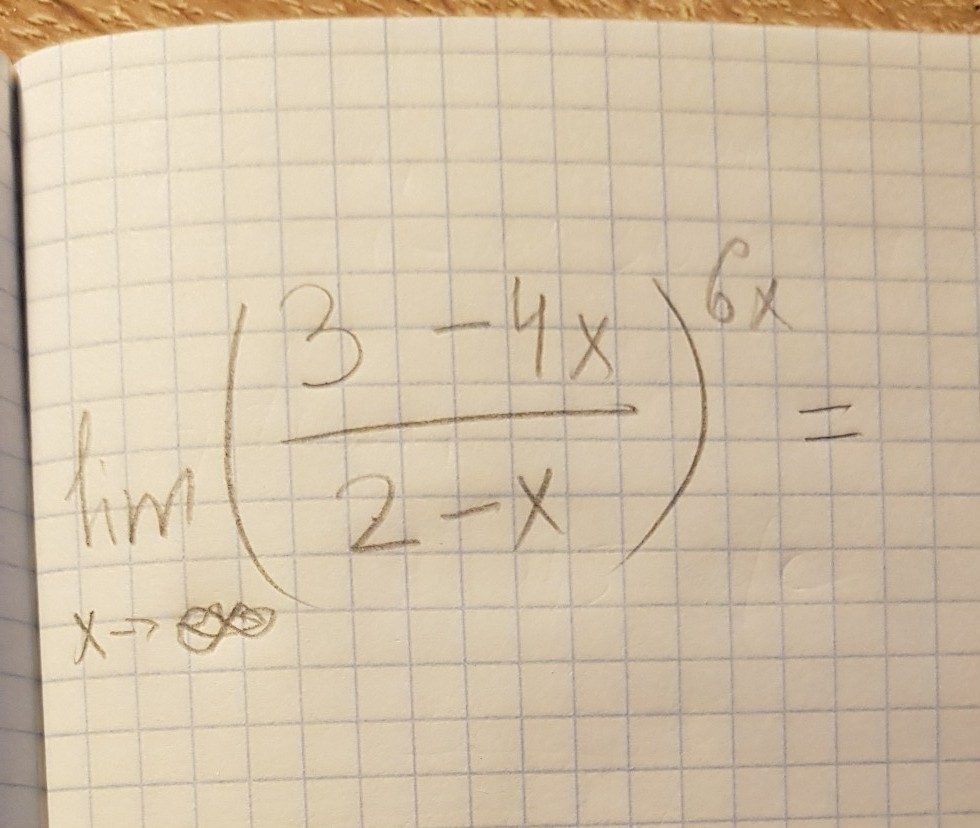 lim (3 - 4x / 2 - x)^6x =
x → ∞